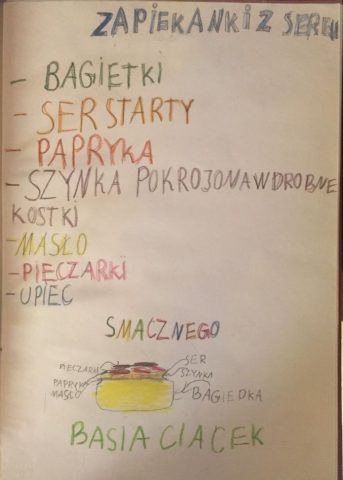 ZAPIEKANKI Z SEREM
- BAGIETKI
- SER STARTY
- PAPRYKA
- SZYNKA POKROJONA W DROBNE
KOSTKI
- MASŁO
- PIECZARKI
- UPIEC
SMACZNEGO
PIECZARKI SER
SZYNKA
PAPRYKA
MASŁO BAGIEDKA
BASIA CIACEK